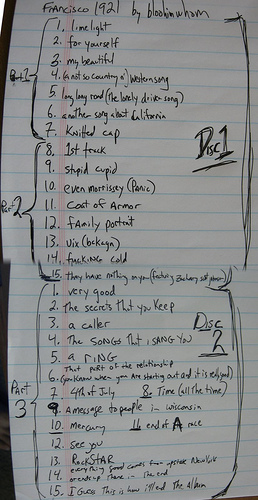 Francisco 1921 by bloohimwhom
Part 1
1. limelight
2. for yourself
3. my beautiful
4. (a not so country n') Western song
5. long long road (the lonely driver song)
6. another song about California
7. Knitted cap
Disc 1
Part 2
8. 1st track
9. stupid cupid
10. even morrissey (Panic)
11. Coat of Armor
12. Family portrait
13. vix (bckagn)
14. fucking cold
15. they have nothing on you (featuring Zachary
1. very good
2. The secrets that you Keep
3. a caller
4. The SONGS That iSANG YOU
5. a RING
Disc 2
Part 3
That part of the relationship
6. (you know when you are starting out and it is really good)
7. 4th of July 8. Time (all the time)
9. A message to people in wisconsin
10. Mercury 11. end of A race
12. see you
13. ROCKSTAR
14. everything good comes from upstate New York
ends up there in the end
15. I Guess This is how i'll end The Album